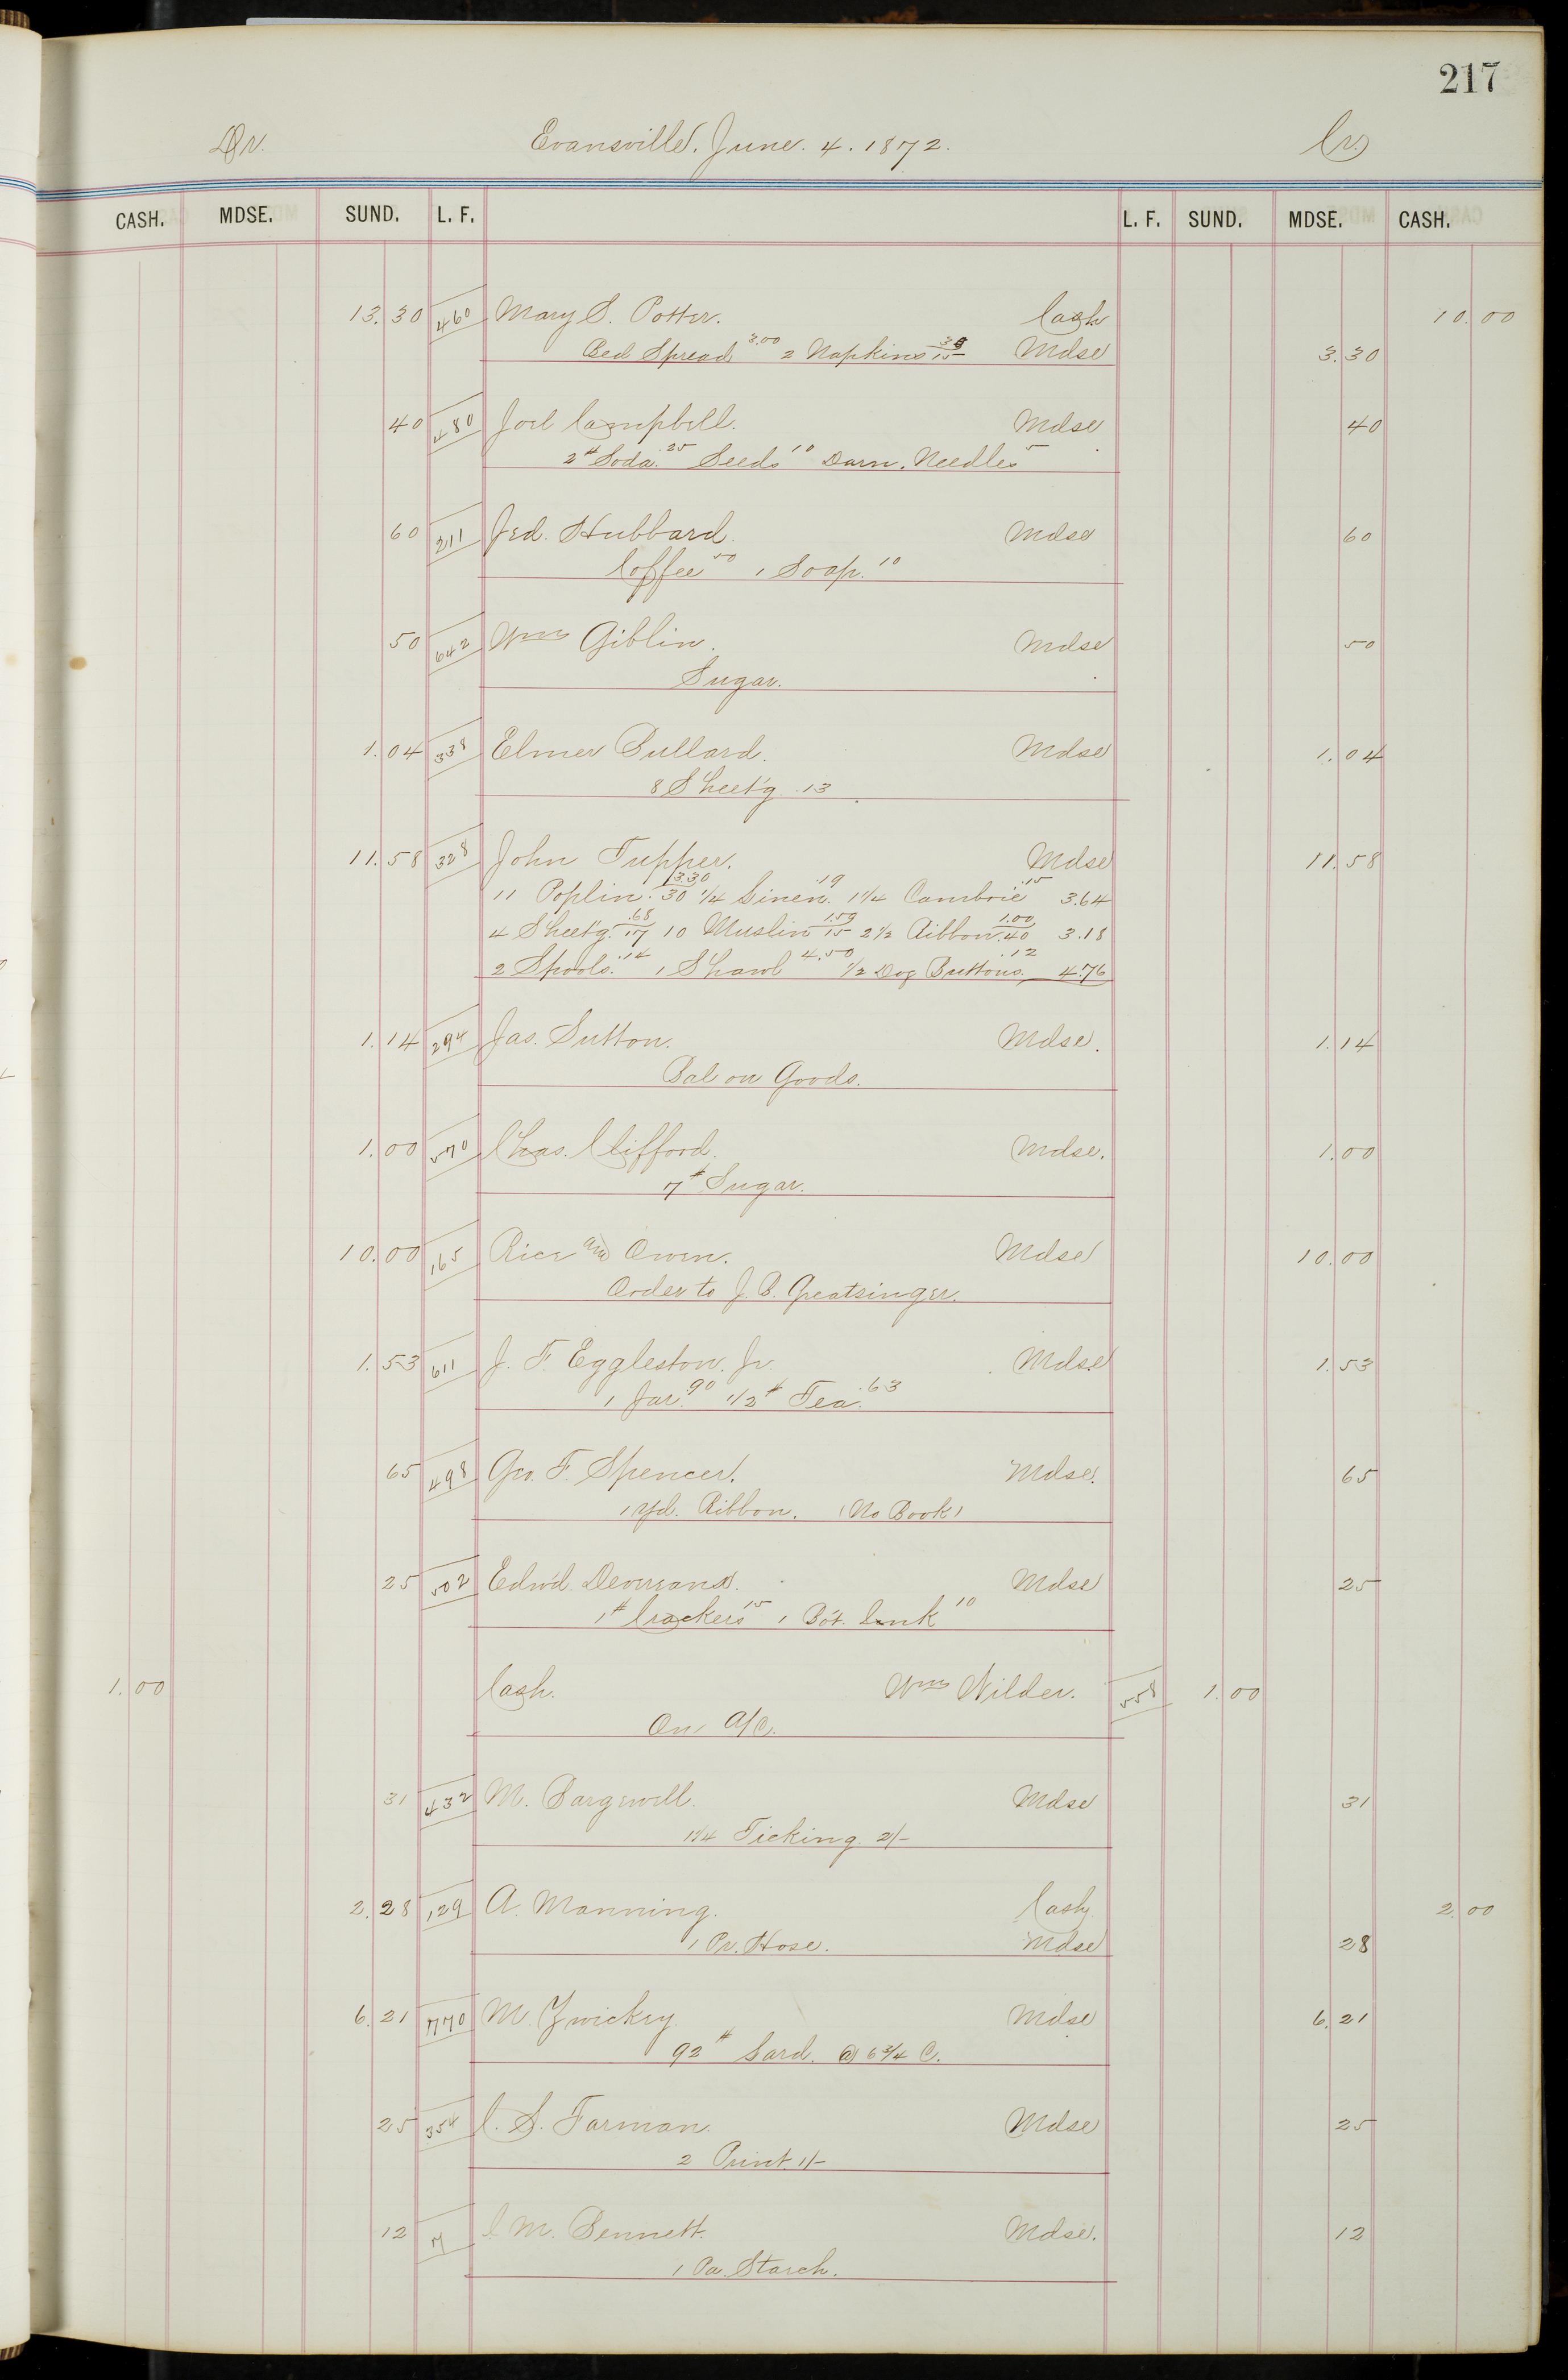 217
Dr. Evansville, June. 4. 1872. Cr.
CASH. MDSE. SUND. L. F. L. F. SUND. MDSE. CASH.
13. 30 460 Mary S. Potter. Cash 10. 00
Bed Spread 3.00 2 Napkins 30/15 Mdse 3. 30
40 480 Joel Campbell. Mdse 40
2# Soda. 25 Seeds 10 Darn. Needles 5
60 211 Jed. Hubbard. Mdse 60
Coffee 50 1 Soap. 10
50 642 Wm Giblin. Mdse 50
Sugar.
1. 04 338 Elmer Bullard. Mdse 1. 04
8 Sheet'g .13
11. 58 328 John Tupper. Mdse 11. 58
11 Poplin. 3.30/30 1/4 Linen. .19 1 1/4 Cambric .15 3.64
4 Sheet'g. .68/17 10 Muslin 1.50/15 2 1/2 Ribbon 1.00/.40 3.18
2 Spools. .14 1 Shawl 4.50 1/2 Doz Buttons. .12 4.76
1. 14 294 Jas. Sutton. Mdse. 1. 14
Bal on Goods.
1. 00 570 Chas. Clifford. Mdse. 1. 00
7# Sugar.
10. 00 165 Rice and Owen. Mdse 10. 00
Order to J. B. Greatsinger.
1. 53 611 J. F. Eggleston. Jr. Mdse 1. 53
1 Jar. .90 1/2# Tea. .63
65 498 Geo. F. Spencer. Mdse. 65
1 Yd. Ribbon. (No Book)
25 502 Edw'd. Mdse 25
1# Crackers 15 1 Bot. 10
1. 00 Cash. Wm Wilder. 558 1. 00
On A/C.
31 432 M. Mdse 31
1 1/4 Ticking. 2/-
2. 28 129 A. Manning. Cash 2. 00
1 Pr. Hose. Mdse 28
6. 21 770 M. Zwickey. Mdse 6. 21
92# Lard. @ 6 3/4 C.
25 354 C. S. Farman. Mdse 25
2 Print. 1/-
12 7 C M. Bennett. Mdse. 12
1 Pa. Starch.